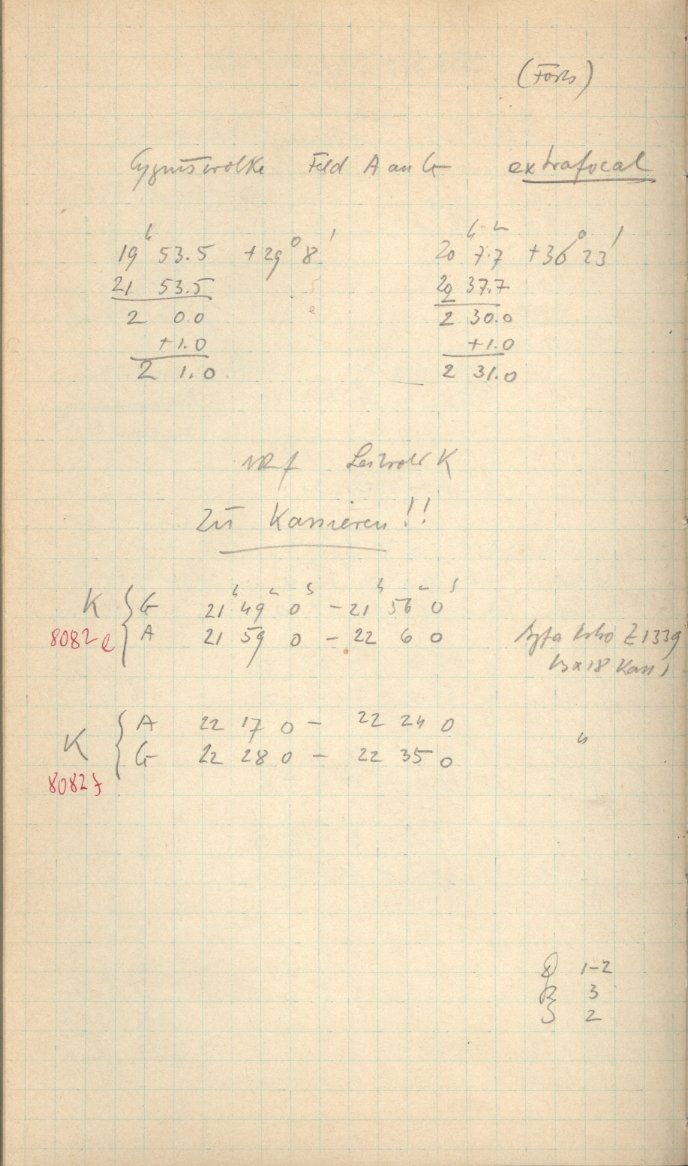 (Forts)
Cygnuswolke Feld A an G extrafocal
19ʰ 53.5 +29° 8'
21 53.5
2 0.0
+1.0
2 1.0
20ʰ 7.7ᵐ +36° 23'
20 37.7
2 30.0
+1.0
2 31.0
K
Zu Kassieren!!
K { G 21ʰ 49ᵐ 0ˢ - 21ʰ 56ᵐ 0ˢ
8082e { A 21 59 0 - 22 6 0
Agfa Z 1339
13x18 Kass 1
K { A 22 17 0 - 22 24 0 "
8082f { G 22 28 0 - 22 35 0
D 1-2
R 3
S 2